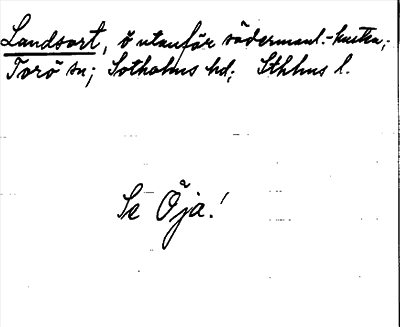 Landsort, ö utanför södermanl.-kusten;
Torö sn; Sotholms hd; Sthlms l.
Se Öja!